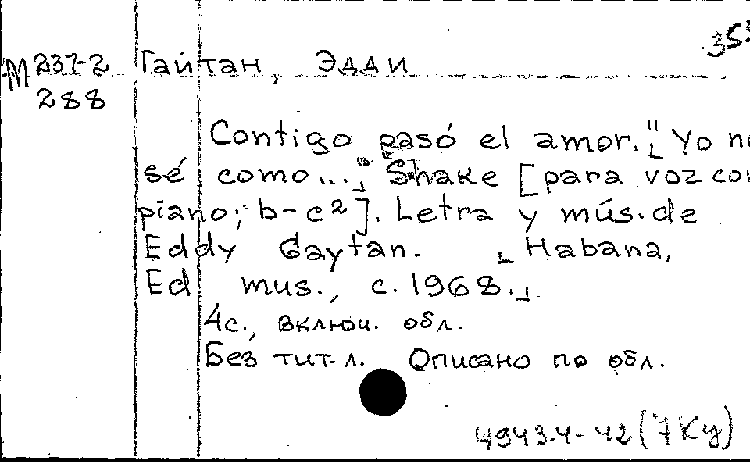 353
М 237-2 Гайтан, Эдди
288
Contigo pasó el amor. "Yo no
sé como..." Shake [para voz con
piano; b-c²]. Letra y mús. de
Eddy Gaytan. [Habana,
Ed mus., c. 1968.]
4с., включ. обл.
Без тит. л. Описано по обл.
49434-42 (7Ку)